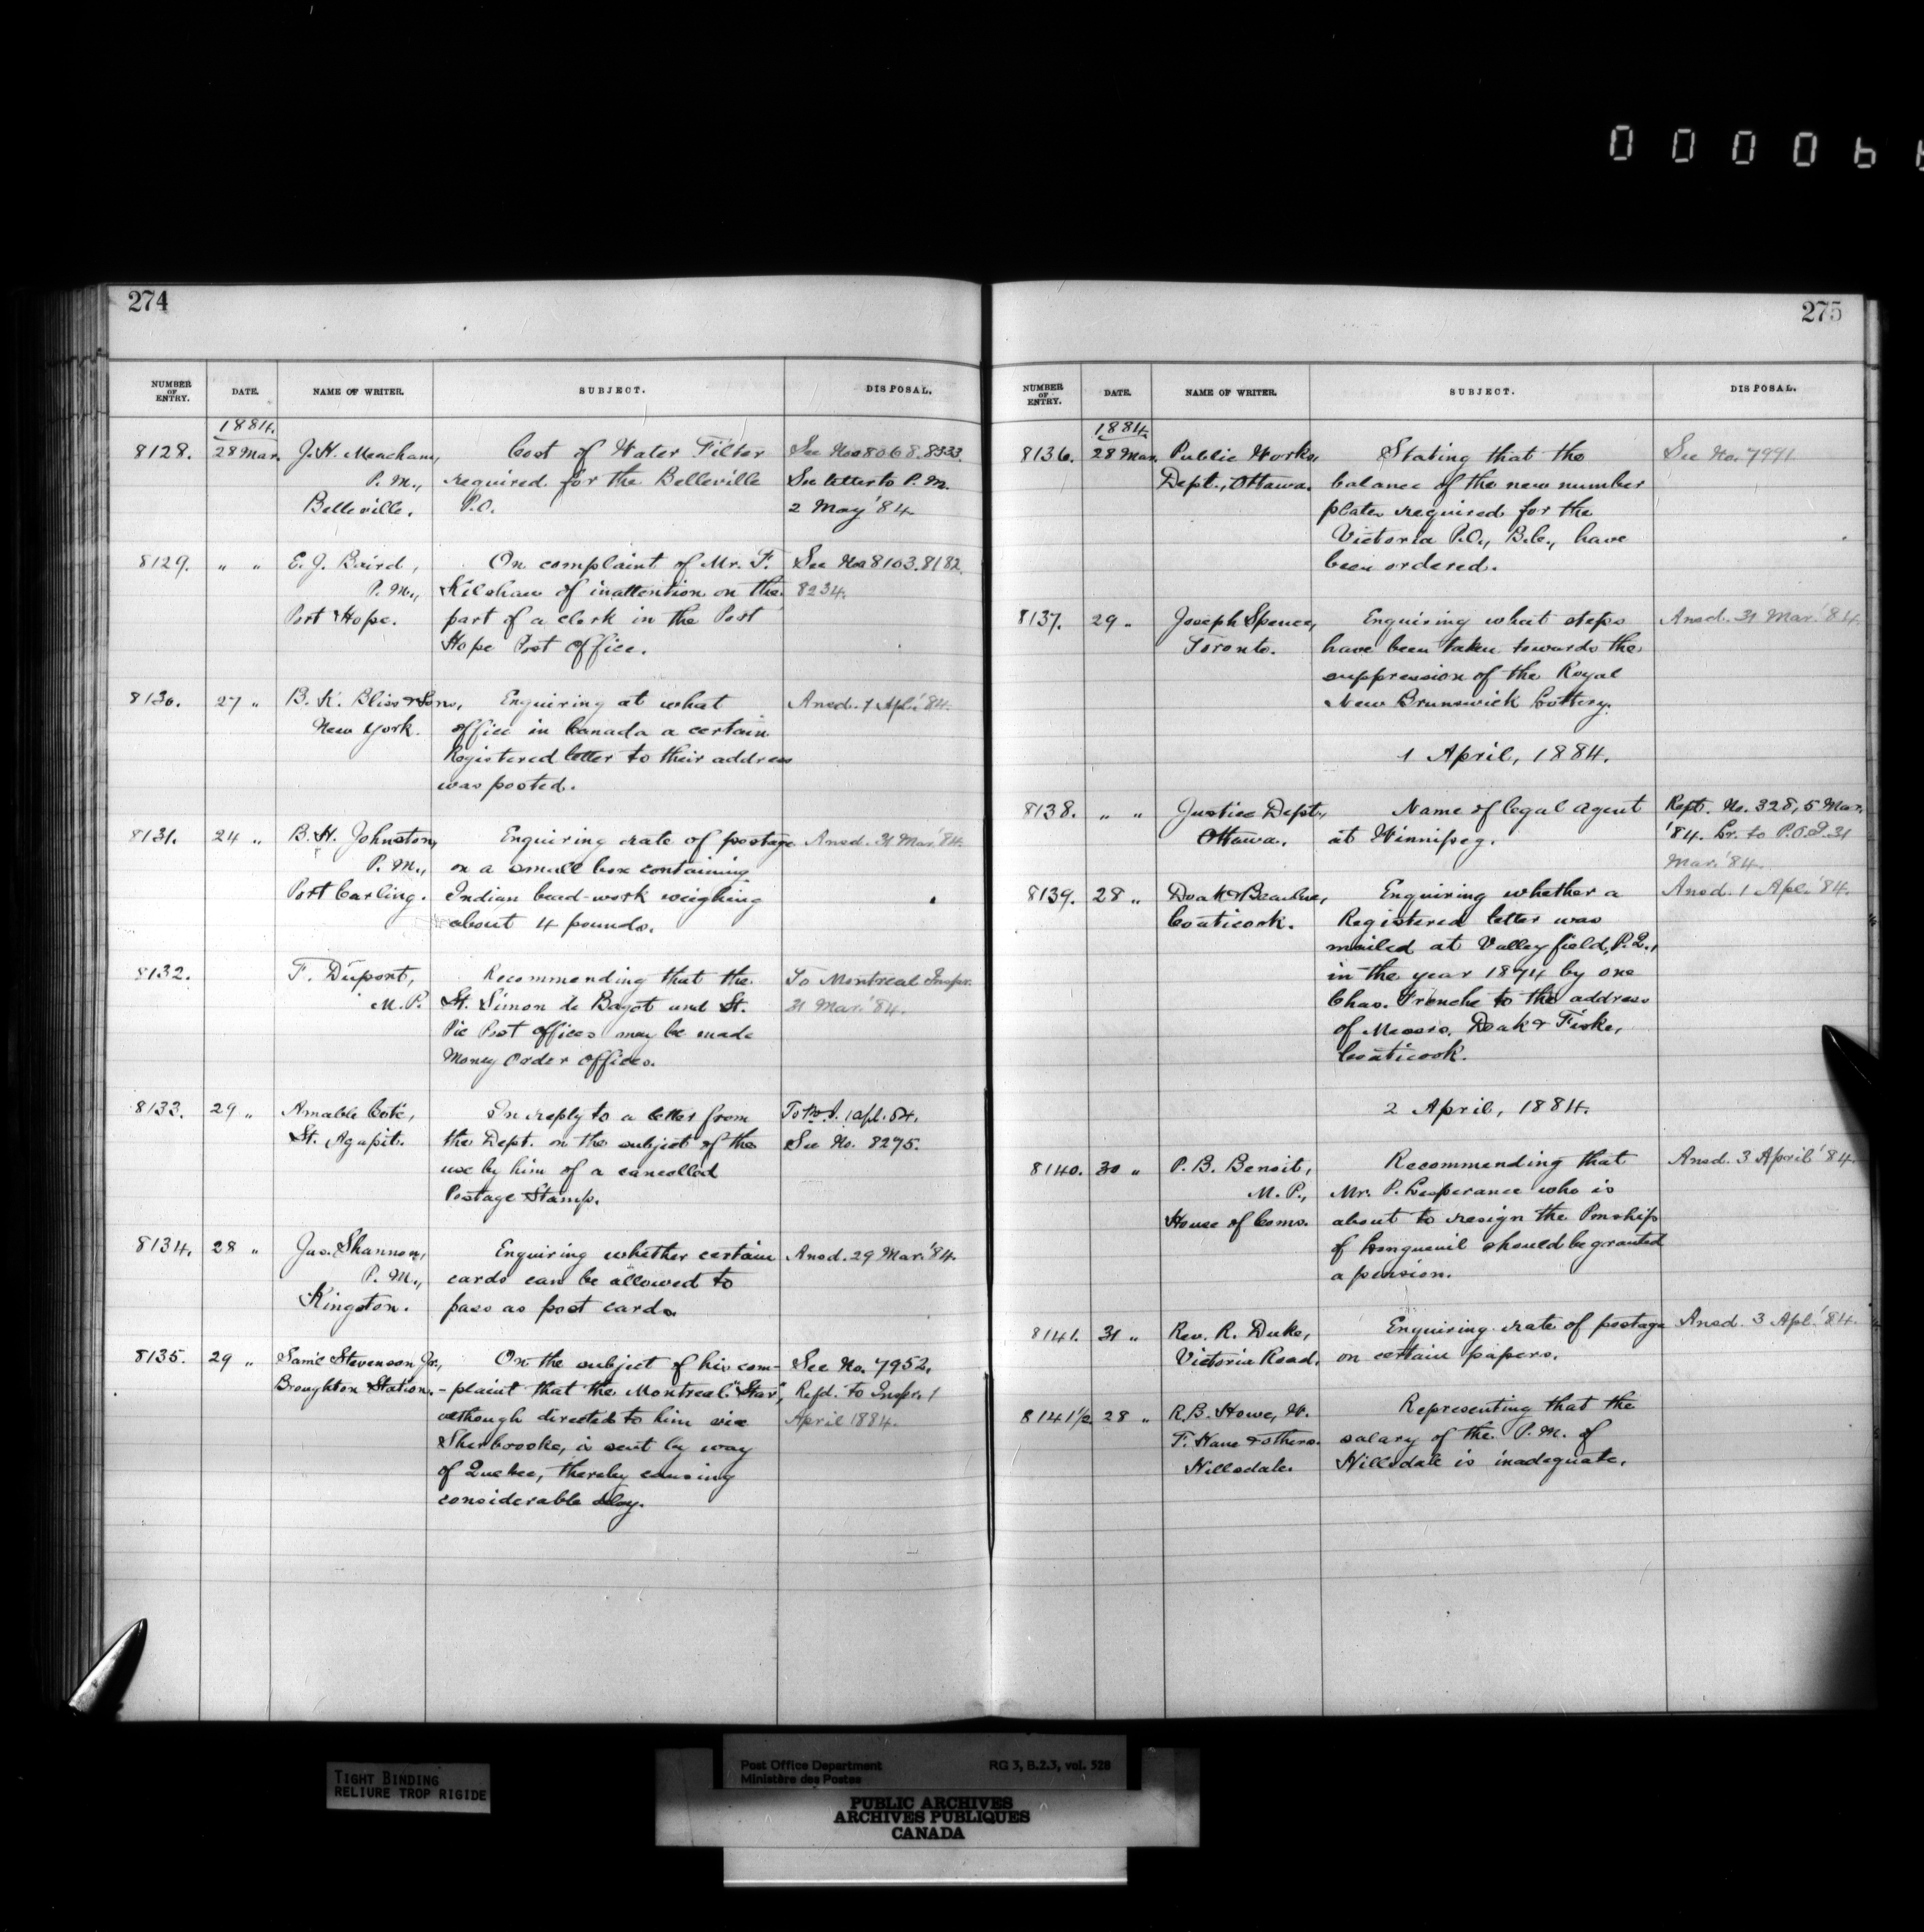 274
NUMBER OF ENTRY. DATE. NAME OF WRITER. SUBJECT. DISPOSAL.
1884.
8128. 28 Mar. J. H. Meacham, Cost of Water Filter See Nos 8068. 8333.
P. M., required for the Belleville See letter to P. M.
Belleville. P.O. 2 May '84.
8129. " " E. J. Baird, On complaint of Mr. F. See Nos 8103. 8182.
P. M., Kilshaw of inattention on the 8234.
Port Hope. part of a clerk in the Port
Hope Post Office.
8130. 27 " B. K. Bliss & Sons, Enquiring at what Ansd. 1 Apl. '84.
New York. office in Canada a certain
Registered letter to their address
was posted.
8131. 24 " B. H. Johnston, Enquiring rate of postage Ansd. 31 Mar. '84.
P. M., on a small box containing
Port Carling. Indian bead-work weighing
about 4 pounds.
8132. F. Dupont, Recommending that the To Montreal Inspr.
M. P. St. Simon de Bagot and St. 31 Mar. '84.
Pie Post Offices may be made
Money Order Offices.
8133. 29 " Amable Coté, In reply to a letter from 1 Apl. 84.
St. Agapit. the Dept. on the subject of the See No. 8275.
use by him of a cancelled
Postage Stamp.
8134. 28 " Jas. Shannon, Enquiring whether certain Ansd. 29 Mar. '84.
P. M., cards can be allowed to
Kingston. pass as post cards.
8135. 29 " Saml. Stevenson Jr., On the subject of his com- See No. 7952.
Broughton Station. -plaint that the Montreal "Star", Refd. to Inspr. 1
although directed to him via April 1884.
Sherbrooke, is sent by way
of Quebec, thereby causing
considerable delay.
275
NUMBER OF ENTRY. DATE. NAME OF WRITER. SUBJECT. DISPOSAL.
1884.
8136. 28 Mar. Public Works, Stating that the See No. 7991.
Dept., Ottawa. balance of the new number
plates required for the
Victoria P.O., B.C., have
been ordered.
8137. 29 " Joseph Spence, Enquiring what steps Ansd. 31 Mar. '84.
Toronto. have been taken towards the
suppression of the Royal
New Brunswick Lottery.
1 April, 1884.
8138. " " Justice Dept., Name of legal Agent Rept. No. 328, 5 Mar.
Ottawa. at Winnipeg. '84. Lr. to P.O.I. 31
Mar. '84.
8139. 28 " Doak & Enquiring whether a Ansd. 1 Apl. '84.
Coaticook. Registered letter was
mailed at Valleyfield, P.Q.,
in the year 1874 by one
Chas. Trenche to the address
of Messrs. Doak & Fiske,
Coaticook.
2 April, 1884.
8140. 30 " P. B. Benoit, Recommending that Ansd. 3 April '84.
M. P., Mr. P. Lesperance who is
House of Coms. about to resign the Pmship
of Longueuil should be granted
a pension.
8141. 31 " Rev. R. Duke, Enquiring rate of postage Ansd. 3 Apl. '84.
Victoria Road. on certain papers.
8141½ 28 " R. B. Howe, W. Representing that the
F. Hane & others. salary of the P. M. of
Hillsdale. Hillsdale is inadequate.
TIGHT BINDING
RELIURE TROP RIGIDE
Post Office Department RG 3, B.2.3, vol. 528
Ministère des Postes
PUBLIC ARCHIVES
ARCHIVES PUBLIQUES
CANADA